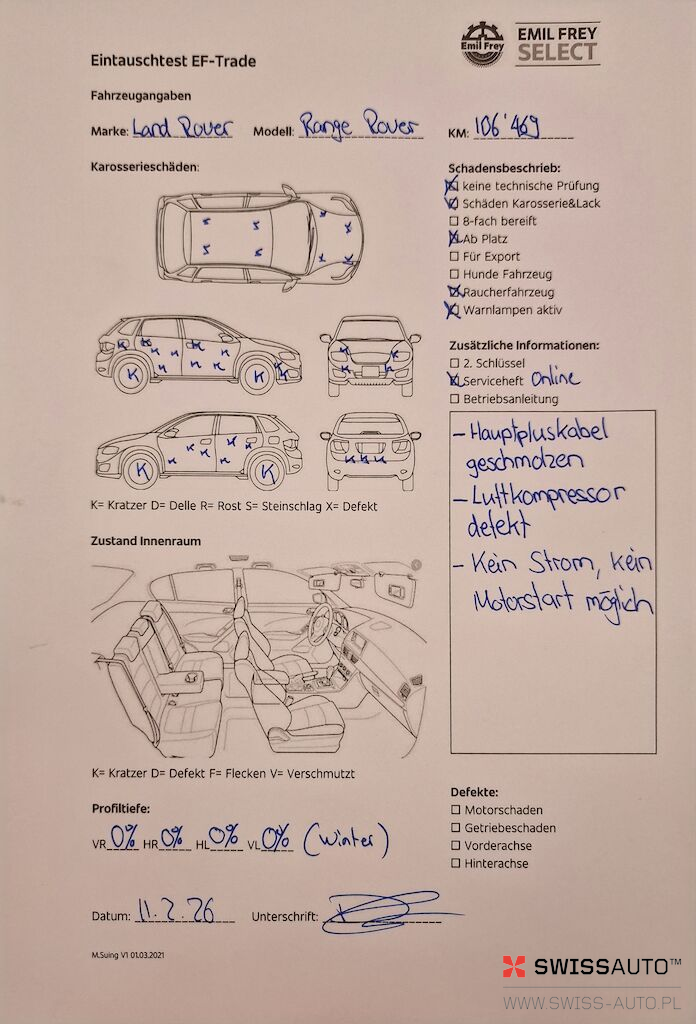 Emil Frey
EMIL FREY
SELECT
Eintauschtest EF-Trade
Fahrzeugangaben
Marke: Land Rover Modell: Range Rover KM: 106'469
Karosserieschäden:
K K K K K K K K
K K K K K K K K K K K
K K K K
K K K K K K K K
K K K
K= Kratzer D= Delle R= Rost S= Steinschlag X= Defekt
Schadensbeschrieb:
☒ keine technische Prüfung
☒ Schäden Karosserie&Lack
☐ 8-fach bereift
☒ Ab Platz
☐ Für Export
☐ Hunde Fahrzeug
☒ Raucherfahrzeug
☒ Warnlampen aktiv
Zusätzliche Informationen:
☐ 2. Schlüssel
☒ Serviceheft Online
☐ Betriebsanleitung
- Hauptpluskabel
geschmolzen
- Luftkompressor
defekt
- Kein Strom, kein
Motorstart möglich
Zustand Innenraum
K= Kratzer D= Defekt F= Flecken V= Verschmutzt
Profiltiefe:
VR 0% HR 0% HL 0% VL 0% (Winter)
Defekte:
☐ Motorschaden
☐ Getriebeschaden
☐ Vorderachse
☐ Hinterachse
Datum: 11.2.26 Unterschrift:
M.Suing V1 01.03.2021
SWISSAUTO™
WWW.SWISS-AUTO.PL